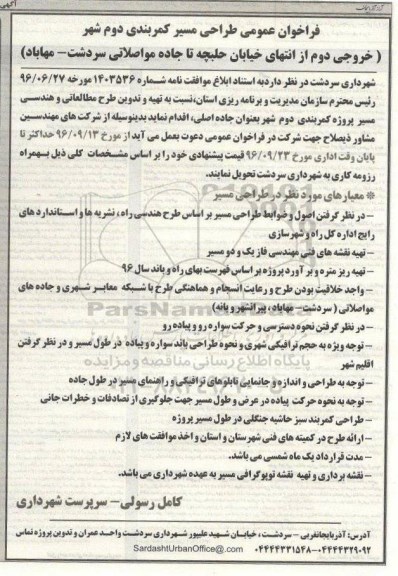 فراخوان عمومی طراحی مسیر کمربندی دوم شهر
( خروجی دوم از انتهای خیابان حلبچه تا جاده مواصلاتی سردشت- مهاباد)
شهرداری سردشت در نظر دارد به استناد ابلاغ موافقت نامه شماره ۱۴۰۳۵۳۶ مورخه ۹۶/۰۶/۲۷
رئیس محترم سازمان مدیریت و برنامه ریزی استان،نسبت به تهیه و تدوین طرح مطالعاتی و هندسی
مسیر پروژه کمربندی دوم شهر بعنوان جاده اصلی، اقدام نماید بدینوسیله از شرکت های مهندسین
مشاور ذیصلاح جهت شرکت در فراخوان عمومی دعوت بعمل می آید از مورخ ۹۶/۰۹/۱۳ حداکثر تا
پایان وقت اداری مورخ ۹۶/۰۹/۲۳ قیمت پیشنهادی خود را بر اساس مشخصات کلی ذیل بهمراه
رزومه کاری به شهرداری سردشت تحویل نمایند.
* معیارهای مورد نظر در طراحی مسیر
- در نظر گرفتن اصول و ضوابط طراحی مسیر بر اساس طرح هندسی راه، نشریه ها و استاندارد های
رایج اداره کل راه و شهرسازی
- تهیه نقشه های فنی مهندسی فاز یک و دو مسیر
- تهیه ریز متره و بر آورد پروژه بر اساس فهرست بهای راه و باند سال ۹۶
- واجد خلاقیت بودن طرح و رعایت انسجام و هماهنگی طرح با شبکه معابر شهری و جاده های
مواصلاتی ( سردشت- مهاباد ، پیرانشهر و بانه)
- در نظر گرفتن نحوه دسترسی و حرکت سواره رو و پیاده رو
- توجه ویژه به حجم ترافیکی شهری و نحوه طراحی باند سواره و پیاده در طول مسیر و در نظر گرفتن
اقلیم شهر
- توجه به طراحی و اندازه و جانمایی تابلوهای ترافیکی و راهنمای مسیر در طول جاده
- توجه به نحوه حرکت پیاده در عرض و طول مسیر جهت جلوگیری از تصادفات و خطرات جانی
- طراحی کمربند سبز حاشیه جنگلی در طول مسیر پروژه
- ارائه طرح در کمیته های فنی شهرستان و استان و اخذ موافقت های لازم
- مدت قرارداد یک ماه شمسی می باشد.
- نقشه برداری و تهیه نقشه توپوگرافی مسیر به عهده شهرداری می باشد.
کامل رسولی- سرپرست شهرداری
آدرس: آذربایجانغربی - سردشت، خیابان شهید علیپور شهرداری سردشت واحد عمران و تدوین پروژه تماس
۰۴۴۴۴۳۲۹۰۹۲-۰۴۴۴۴۳۳۱۵۴۸ SardashtUrbanOffice@.com
ParsNamadData
پایگاه اطلاع رسانی مناقصه و مزایده